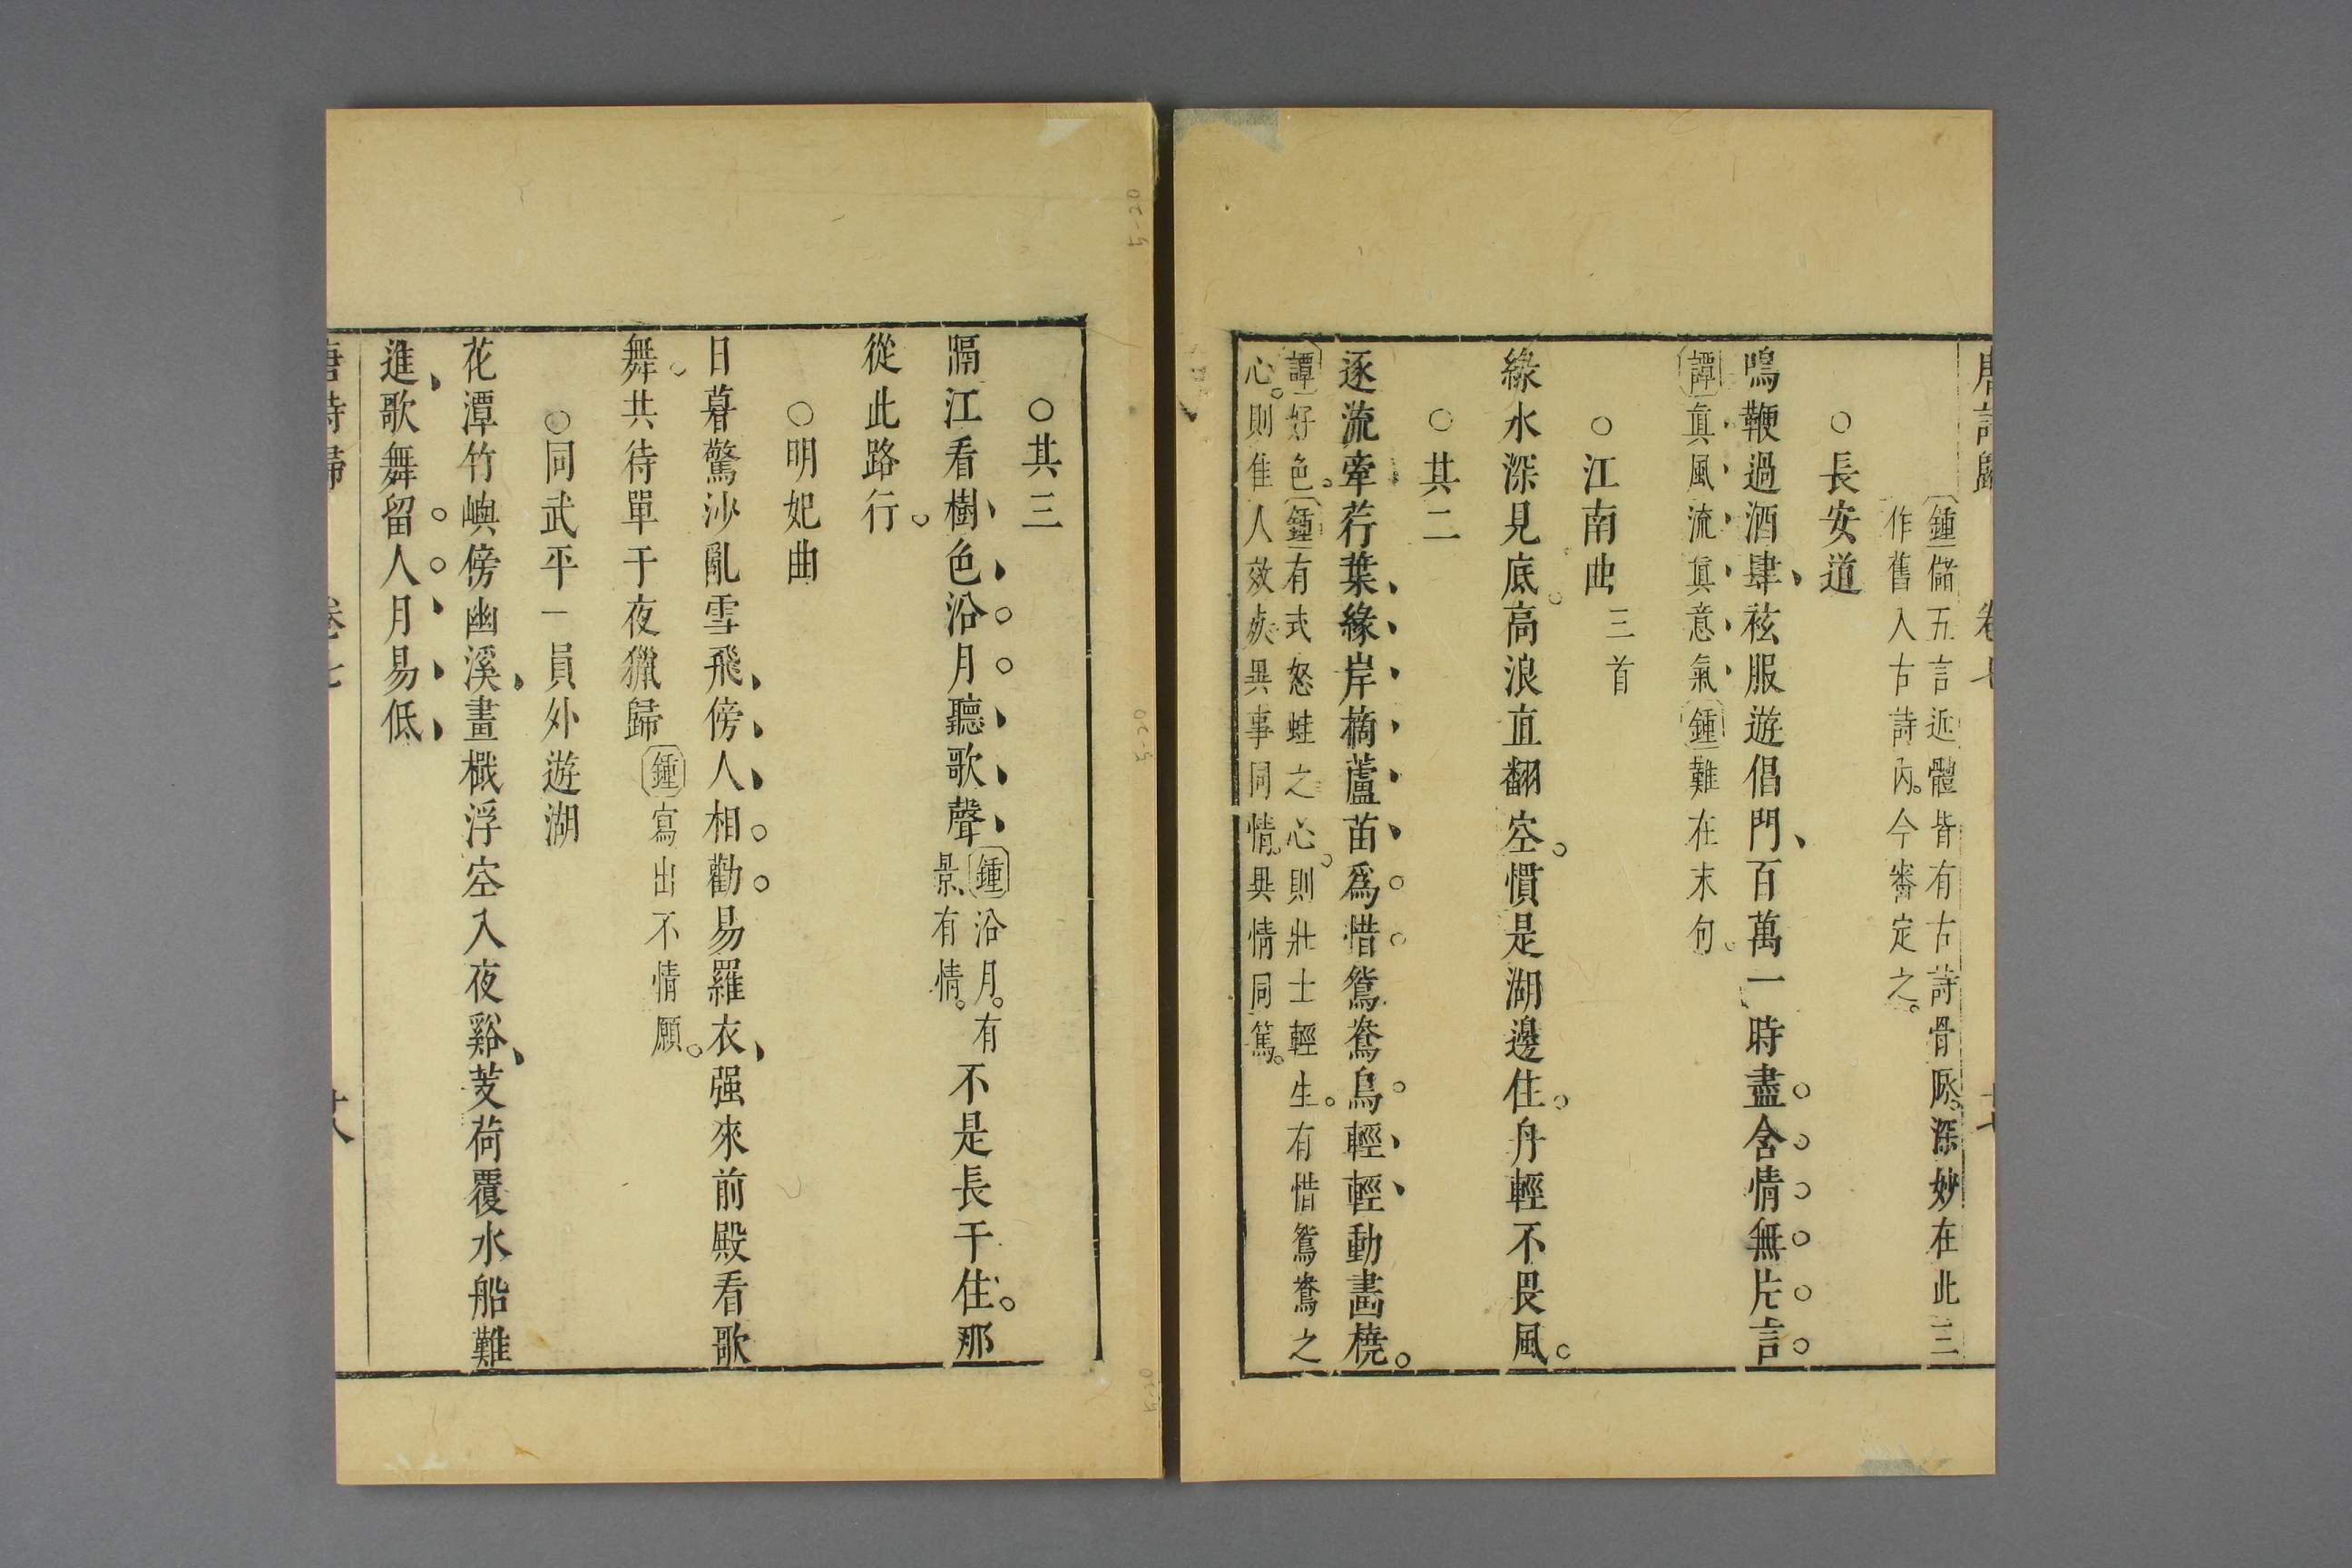 唐詩歸 卷七
鍾儲五言近體皆有古詩骨脈。深妙在此三
作舊入古詩內。今審定之。
○長安道
鳴鞭過酒肆袨服遊倡門百萬一時盡含情無片言
譚眞風流眞意氣鍾難在末句
○江南曲三首
綠水深見底高浪直翻空慣是湖邊住舟輕不畏風
○其二
逐流牽荇葉緣岸摘蘆苗爲惜鴛鴦鳥輕輕動畵橈
譚好色。鍾有式怒蛙之心。則壯士輕生。有惜鴛鴦之
心。則佳人效死。異事同情。異情同篤。
○其三
隔江看樹色沿月聽歌聲鍾沿月。有
景有情。不是長干住那
從此路行
○明妃曲
日暮驚沙亂雪飛傍人相勸易羅衣强來前殿看歌
舞共待單于夜獵歸鍾寫出不情願。
○同武平一員外遊湖
花潭竹嶼傍幽溪畫檝浮空入夜谿芰荷覆水船難
進歌舞留人月易低
唐詩歸 卷七 廿八